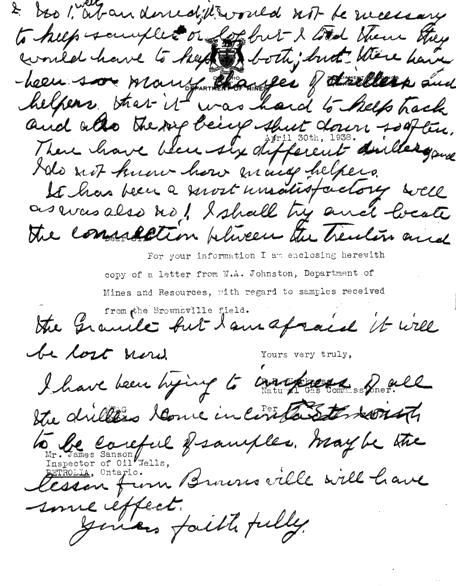 2. No 1. well abandoned, it would not be necessary
to keep samples or log but I told them they
would have to keep both; but there have
been so many changes of drillers and
DEPARTMENT OF MINES
helpers that it was hard to keep track
and also the rig being shut down so often.
April 30th, 1938.
There have been six different drillers and
I do not know how many helpers.
It has been a most unsatisfactory well
as was also no 1 I shall try and locate
the connection between the trenton and
For your information I am enclosing herewith
copy of a letter from W.A. Johnston, Department of
Mines and Resources, with regard to samples received
from the Brownsville field.
the Granite but I am afraid it will
be lost now.
Yours very truly,
I have been trying to impress of all
Natural Gas Commissioner.
the drillers I come in contact with
Per
to be careful of samples. Maybe the
Mr. James Sanson
Inspector of Oil Wells,
PETROLIA, Ontario.
lesson from Brownsville will have
some effect.
Yours faithfully.